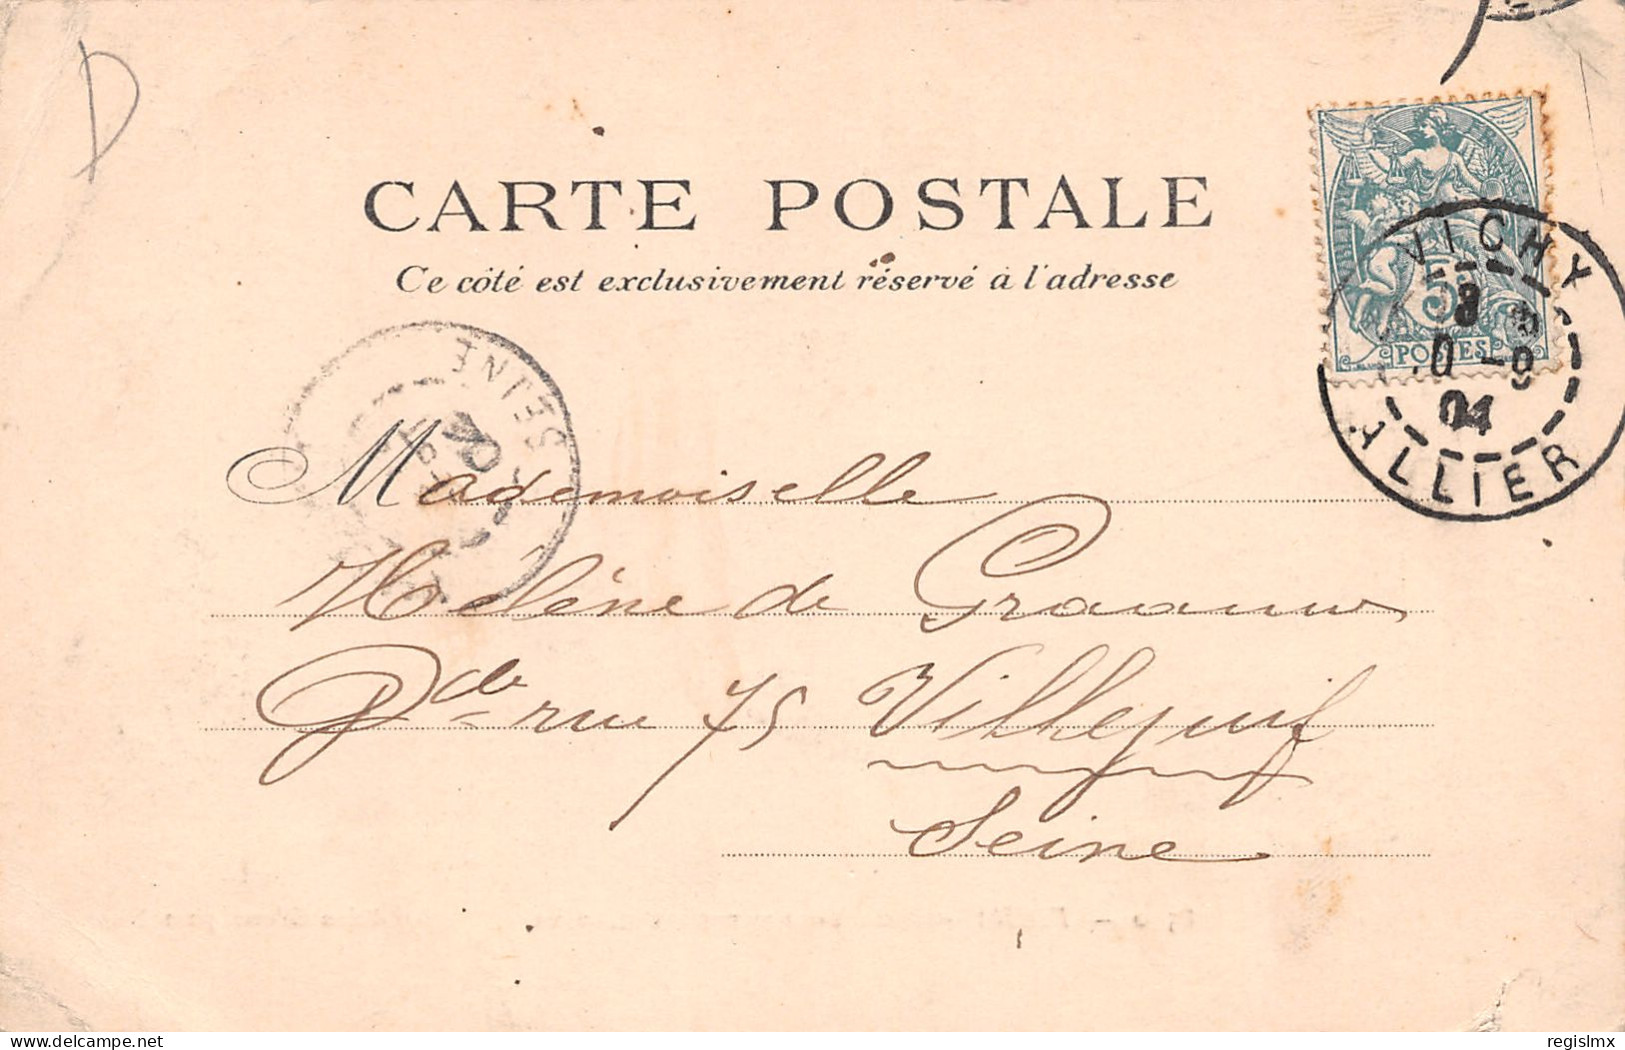 D
CARTE POSTALE
Ce côté est exclusivement réservé à l'adresse
5
POSTES
VICHY
8
04
ALLIER
SEINE
Mademoiselle
Hélène de
Gde rue 75 Villejuif
Seine
delcampe.net
regislmx